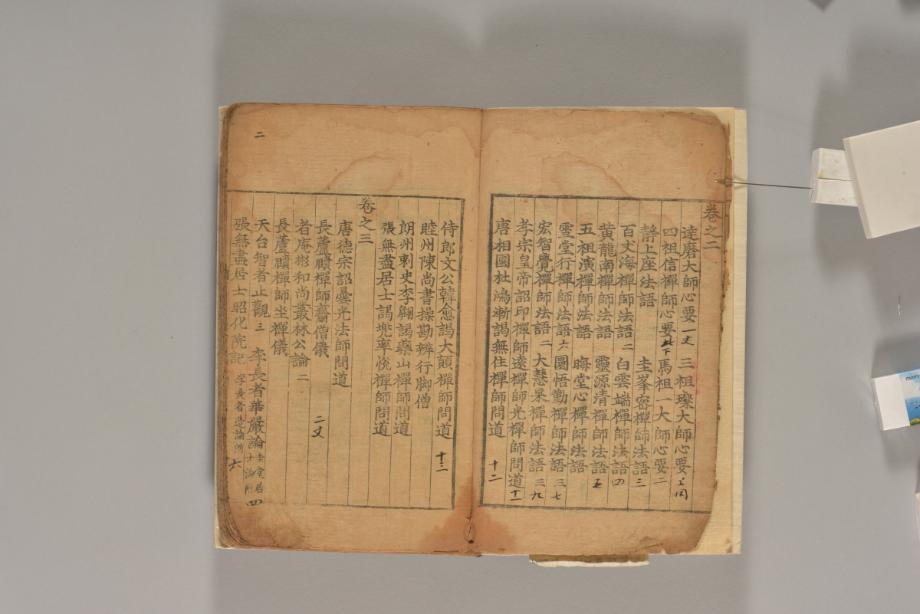 卷之二
達磨大師心要一丈　三祖璨大師心要
四祖信禪師心要　馬祖一大師心要二
靜上座法語　圭峯密禪師法語三
百丈海禪師法語二　白雲端禪師法語四
黄龍南禪師法語　靈源清禪師法語五
五祖演禪師法語　晦堂心禪師法語
雲堂行禪師法語六　圜悟勤禪師法語三七
宏智覺禪師法語二　大慧杲禪師法語三九
孝宗皇帝詔印禪師遠禪師光禪師問道十一
唐相國杜鴻漸謁無住禪師問道　十二
侍郎文公韓愈謁大顛禪師問道　十二
睦州陳尚書操勘辨行脚僧
朗州刺史李翺謁藥山禪師問道
張無盡居士謁兜率悅禪師問道
卷之三
唐德宗詔曇光法師問道
長蘆賾禪師龜鏡文　二丈
者庵彬和尚叢林公論二
長蘆賾禪師坐禪儀
天台智者止觀三　李長者華嚴論　四
張無盡居士昭化院記　李長者造論所　六
二